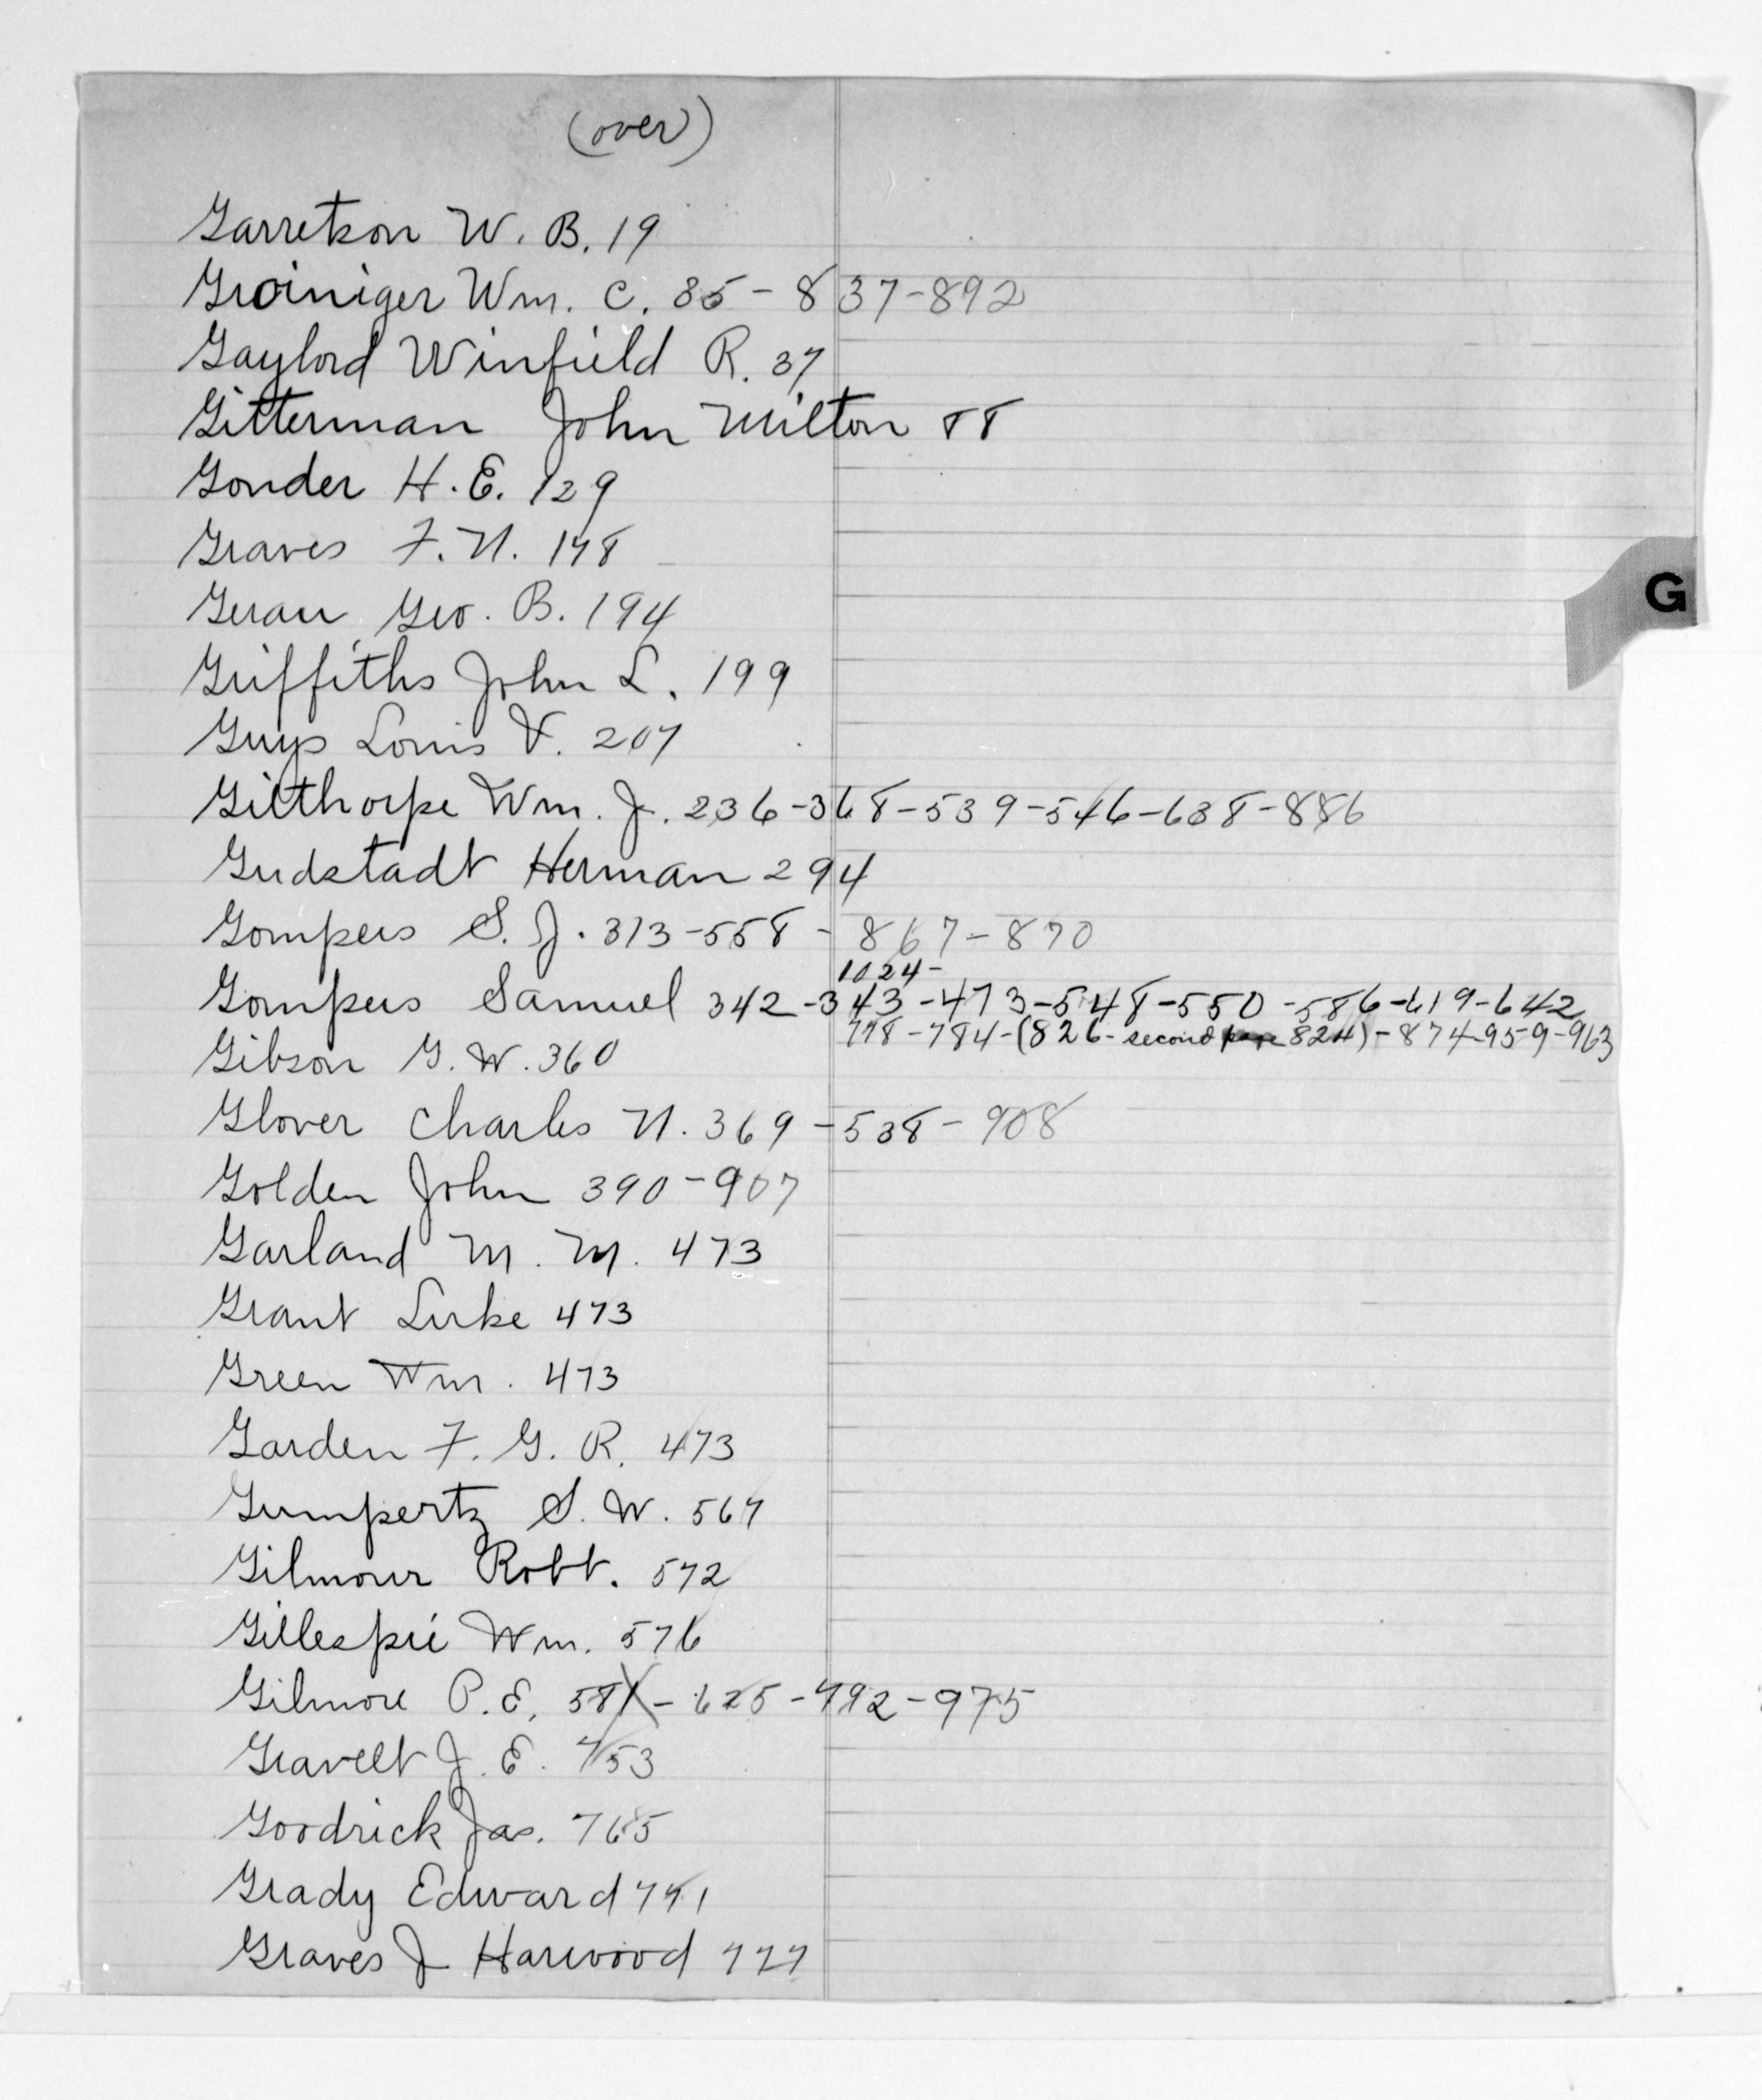 (over)
Garretson W. B. 19
Groiniger Wm. C. 35 - 837-892
Gaylord Winfield R. 37
Gitterman John Milton 88
Gonder H. E. 129
Graves F. N. 148
G
Geran Geo. B. 194
Griffiths John L. 199
Guys Louis V. 207
Gilthorpe Wm. J. 236-368-539-546-638-886
Gudstadt Herman 294
Gompers S. J. 313-558 - 867-870
1024-
Gompers Samuel 342-343-473-548-550-586-619-642
778-784-(826- second 824)-874-959-963
Gibson G. W. 360
Glover Charles N. 369-538-908
Golden John 390-907
Garland M. M. 473
Grant Luke 473
Green Wm. 473
Garden F. G. R. 473
Gumpertz S. W. 567
Gilmour Robt. 572
Gillespie Wm. 576
Gilmore P. E. 581-625-792-975
Gravelt J. E. 753
Goodrick Jas. 765
Grady Edward 771
Graves J Harwood 777